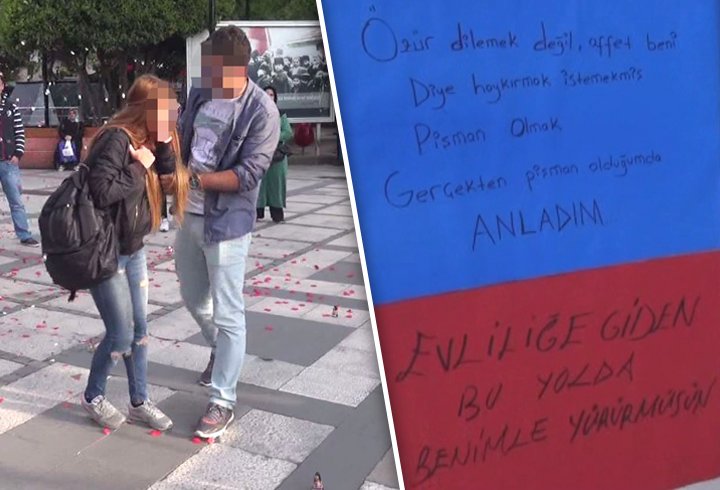 Özür dilemek değil, affet beni
Diye haykırmak istemekmiş
Pişman Olmak
Gerçekten pişman olduğumda
ANLADIM
EVLİLİĞE GİDEN
BU YOLDA
BENİMLE YÜRÜRMÜSÜN